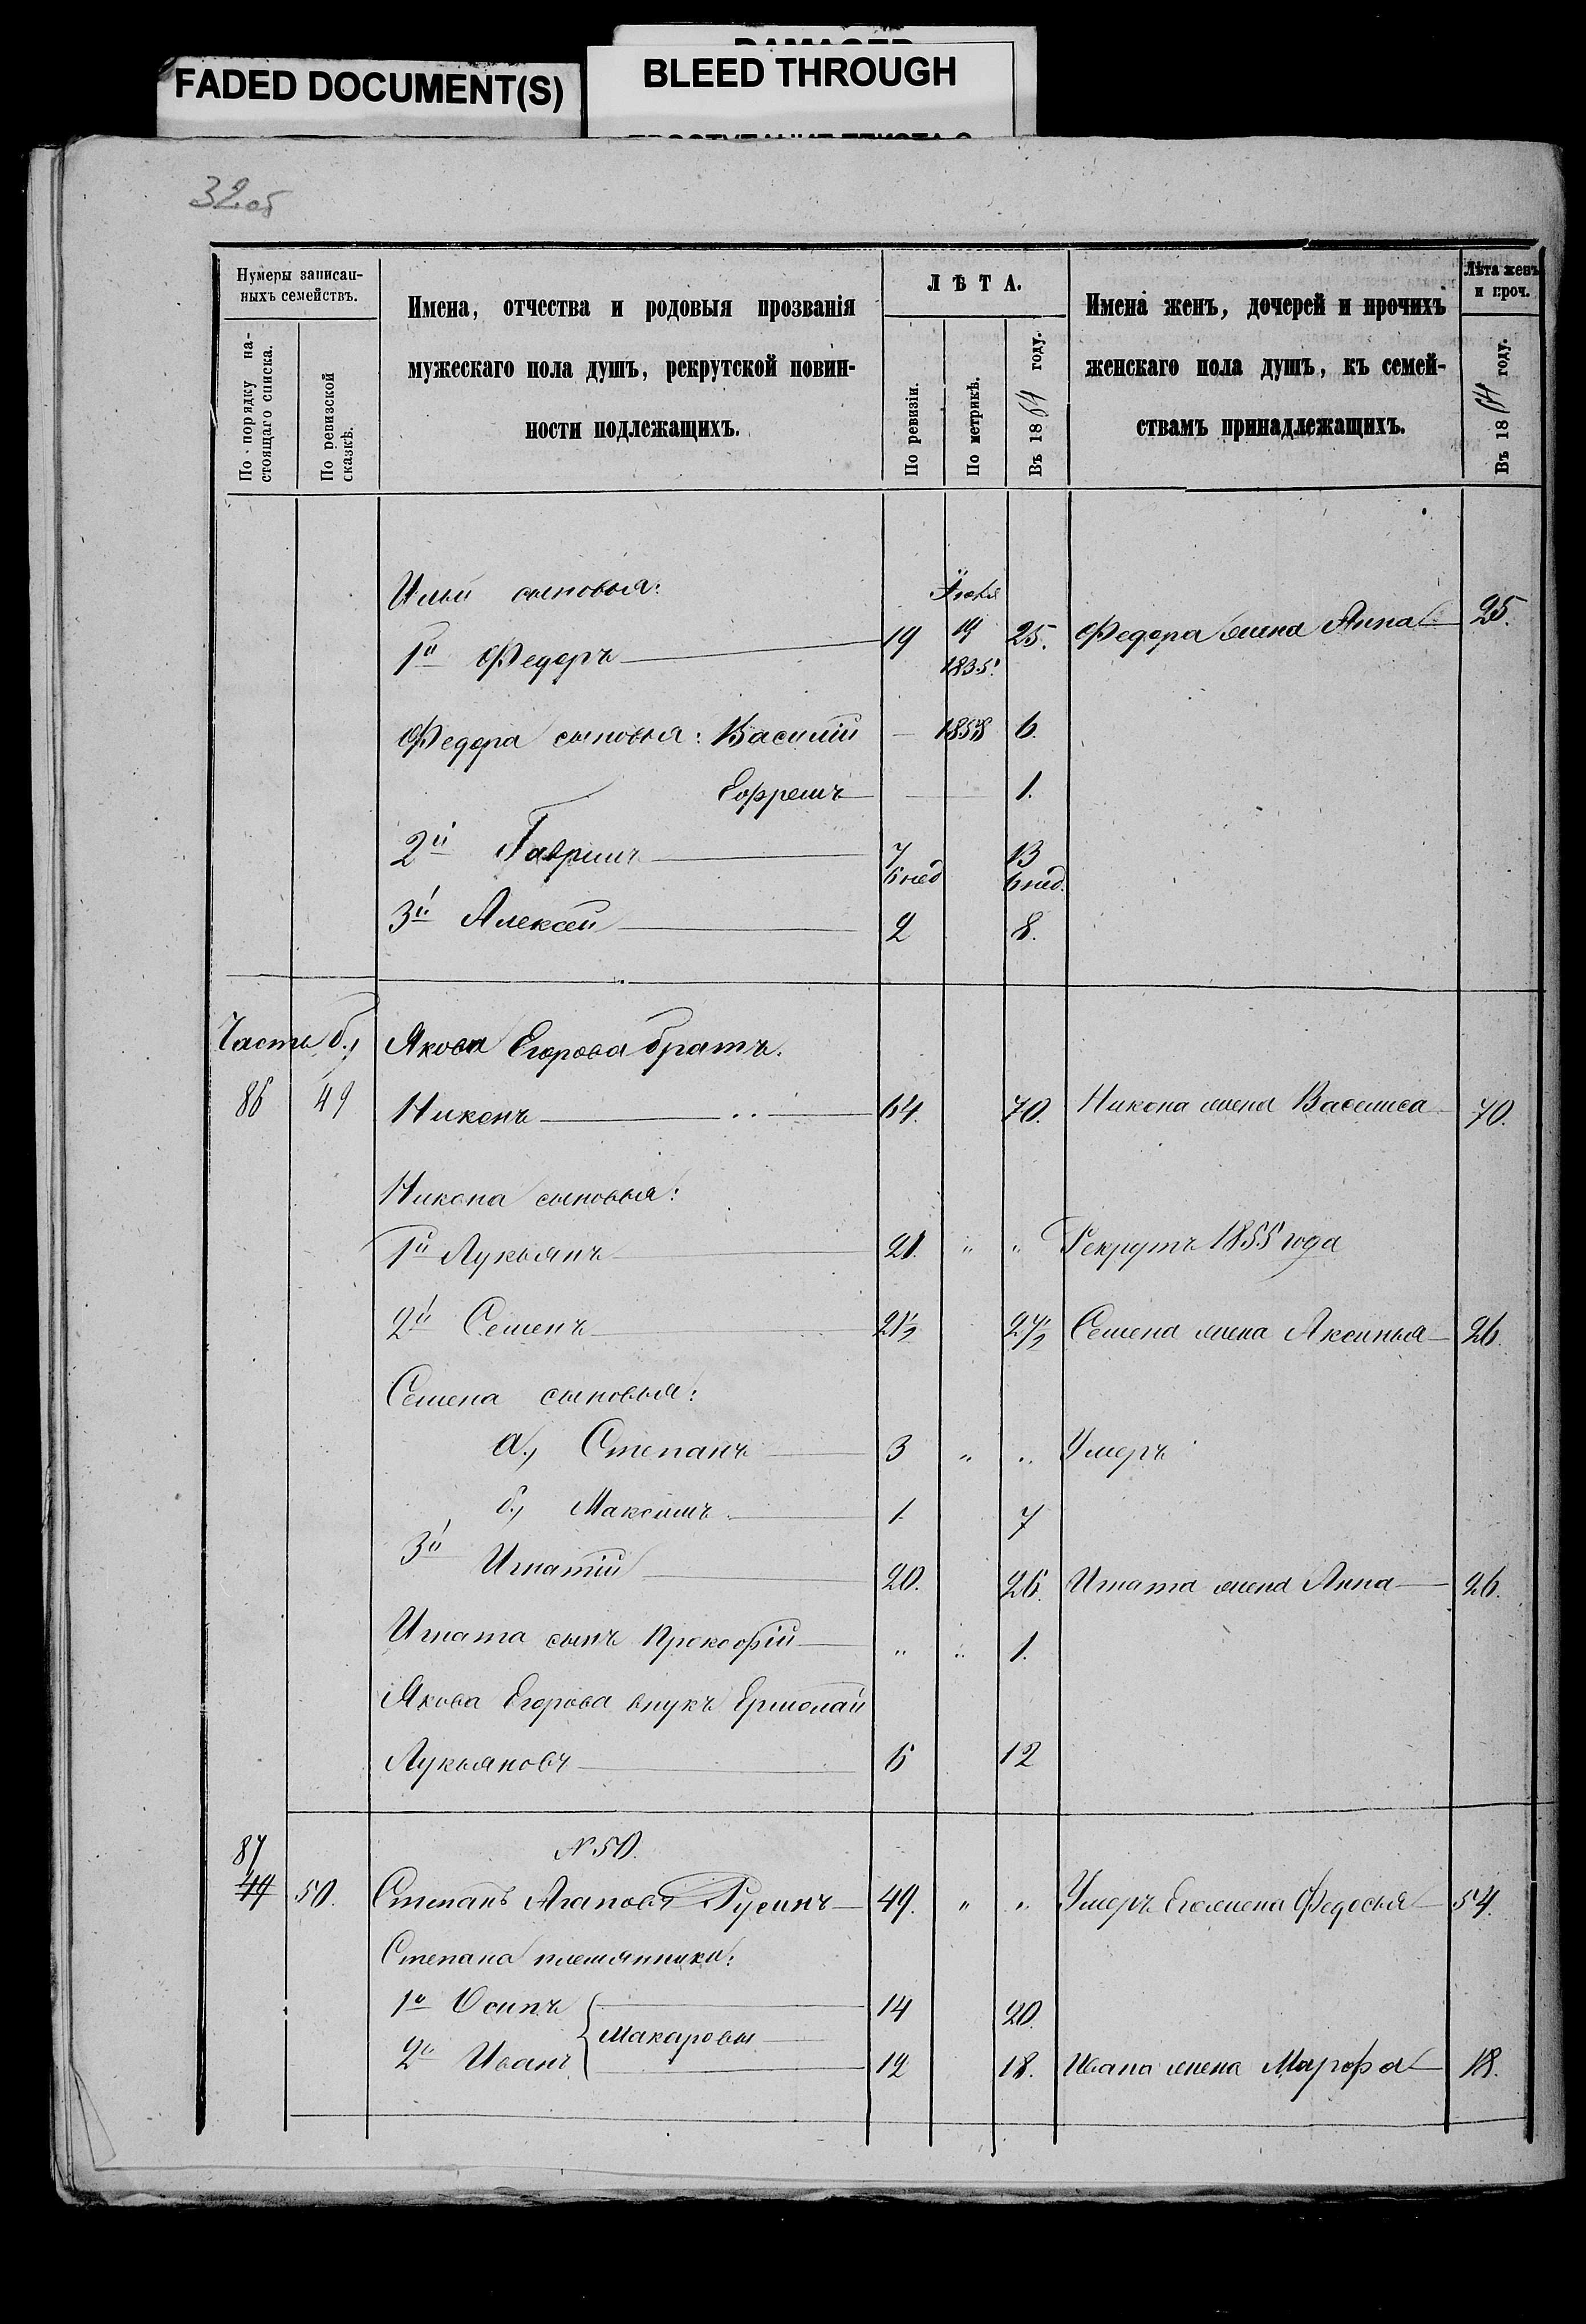 FADED DOCUMENT(S)
BLEED THROUGH
32об
Нумеры записан-
ныхъ семействъ.
По порядку на-
стоящаго списка.
По ревизской
сказкѣ.
Имена, отчества и родовыя прозванія
мужескаго пола душъ, рекрутской повин-
ности подлежащихъ.
ЛѢТА.
По ревизіи.
По метрикѣ.
Въ 1864 году.
Имена женъ, дочерей и прочихъ
женскаго пола душъ, къ семей-
ствамъ принадлежащихъ.
Лѣта женъ
и проч.
Въ 1864 году.
Ильи сыновья:
1й Федоръ 19 19 1835. 25. Федора жена Анна 25.
Федора сыновья: Василій — 1858 6.
Ефремъ 1.
2й Гаврилъ 7 6 нед 13 6 нед.
3й Алексѣй 2 8.
Часть б.,
Якова Егорова братъ.
86 49 Никонъ 64. 70. Никона жена Василиса 70.
Никона сыновья:
1й Лукьянъ 21. " " Рекрутъ 1855 года
2й Семенъ 21½ 27½ Семена жена Аксинья 26.
Семена сыновья:
а., Степанъ 3 " " Умеръ
б., Максимъ 1 7
3й Игнатій 20. 26. Игната жена Анна 26.
Игната сынъ Прокофій " " 1.
Якова Егорова внукъ Ермолай
Лукьяновъ 6 12
N 50.
87
49 50. Степанъ Агаповъ Русинъ 49. " " Умеръ Его жена Федосья 54.
Степана племянники:
1й Осипъ 14 20.
Макаровы
2й Иванъ 12 18. Ивана жена Марфа 18.